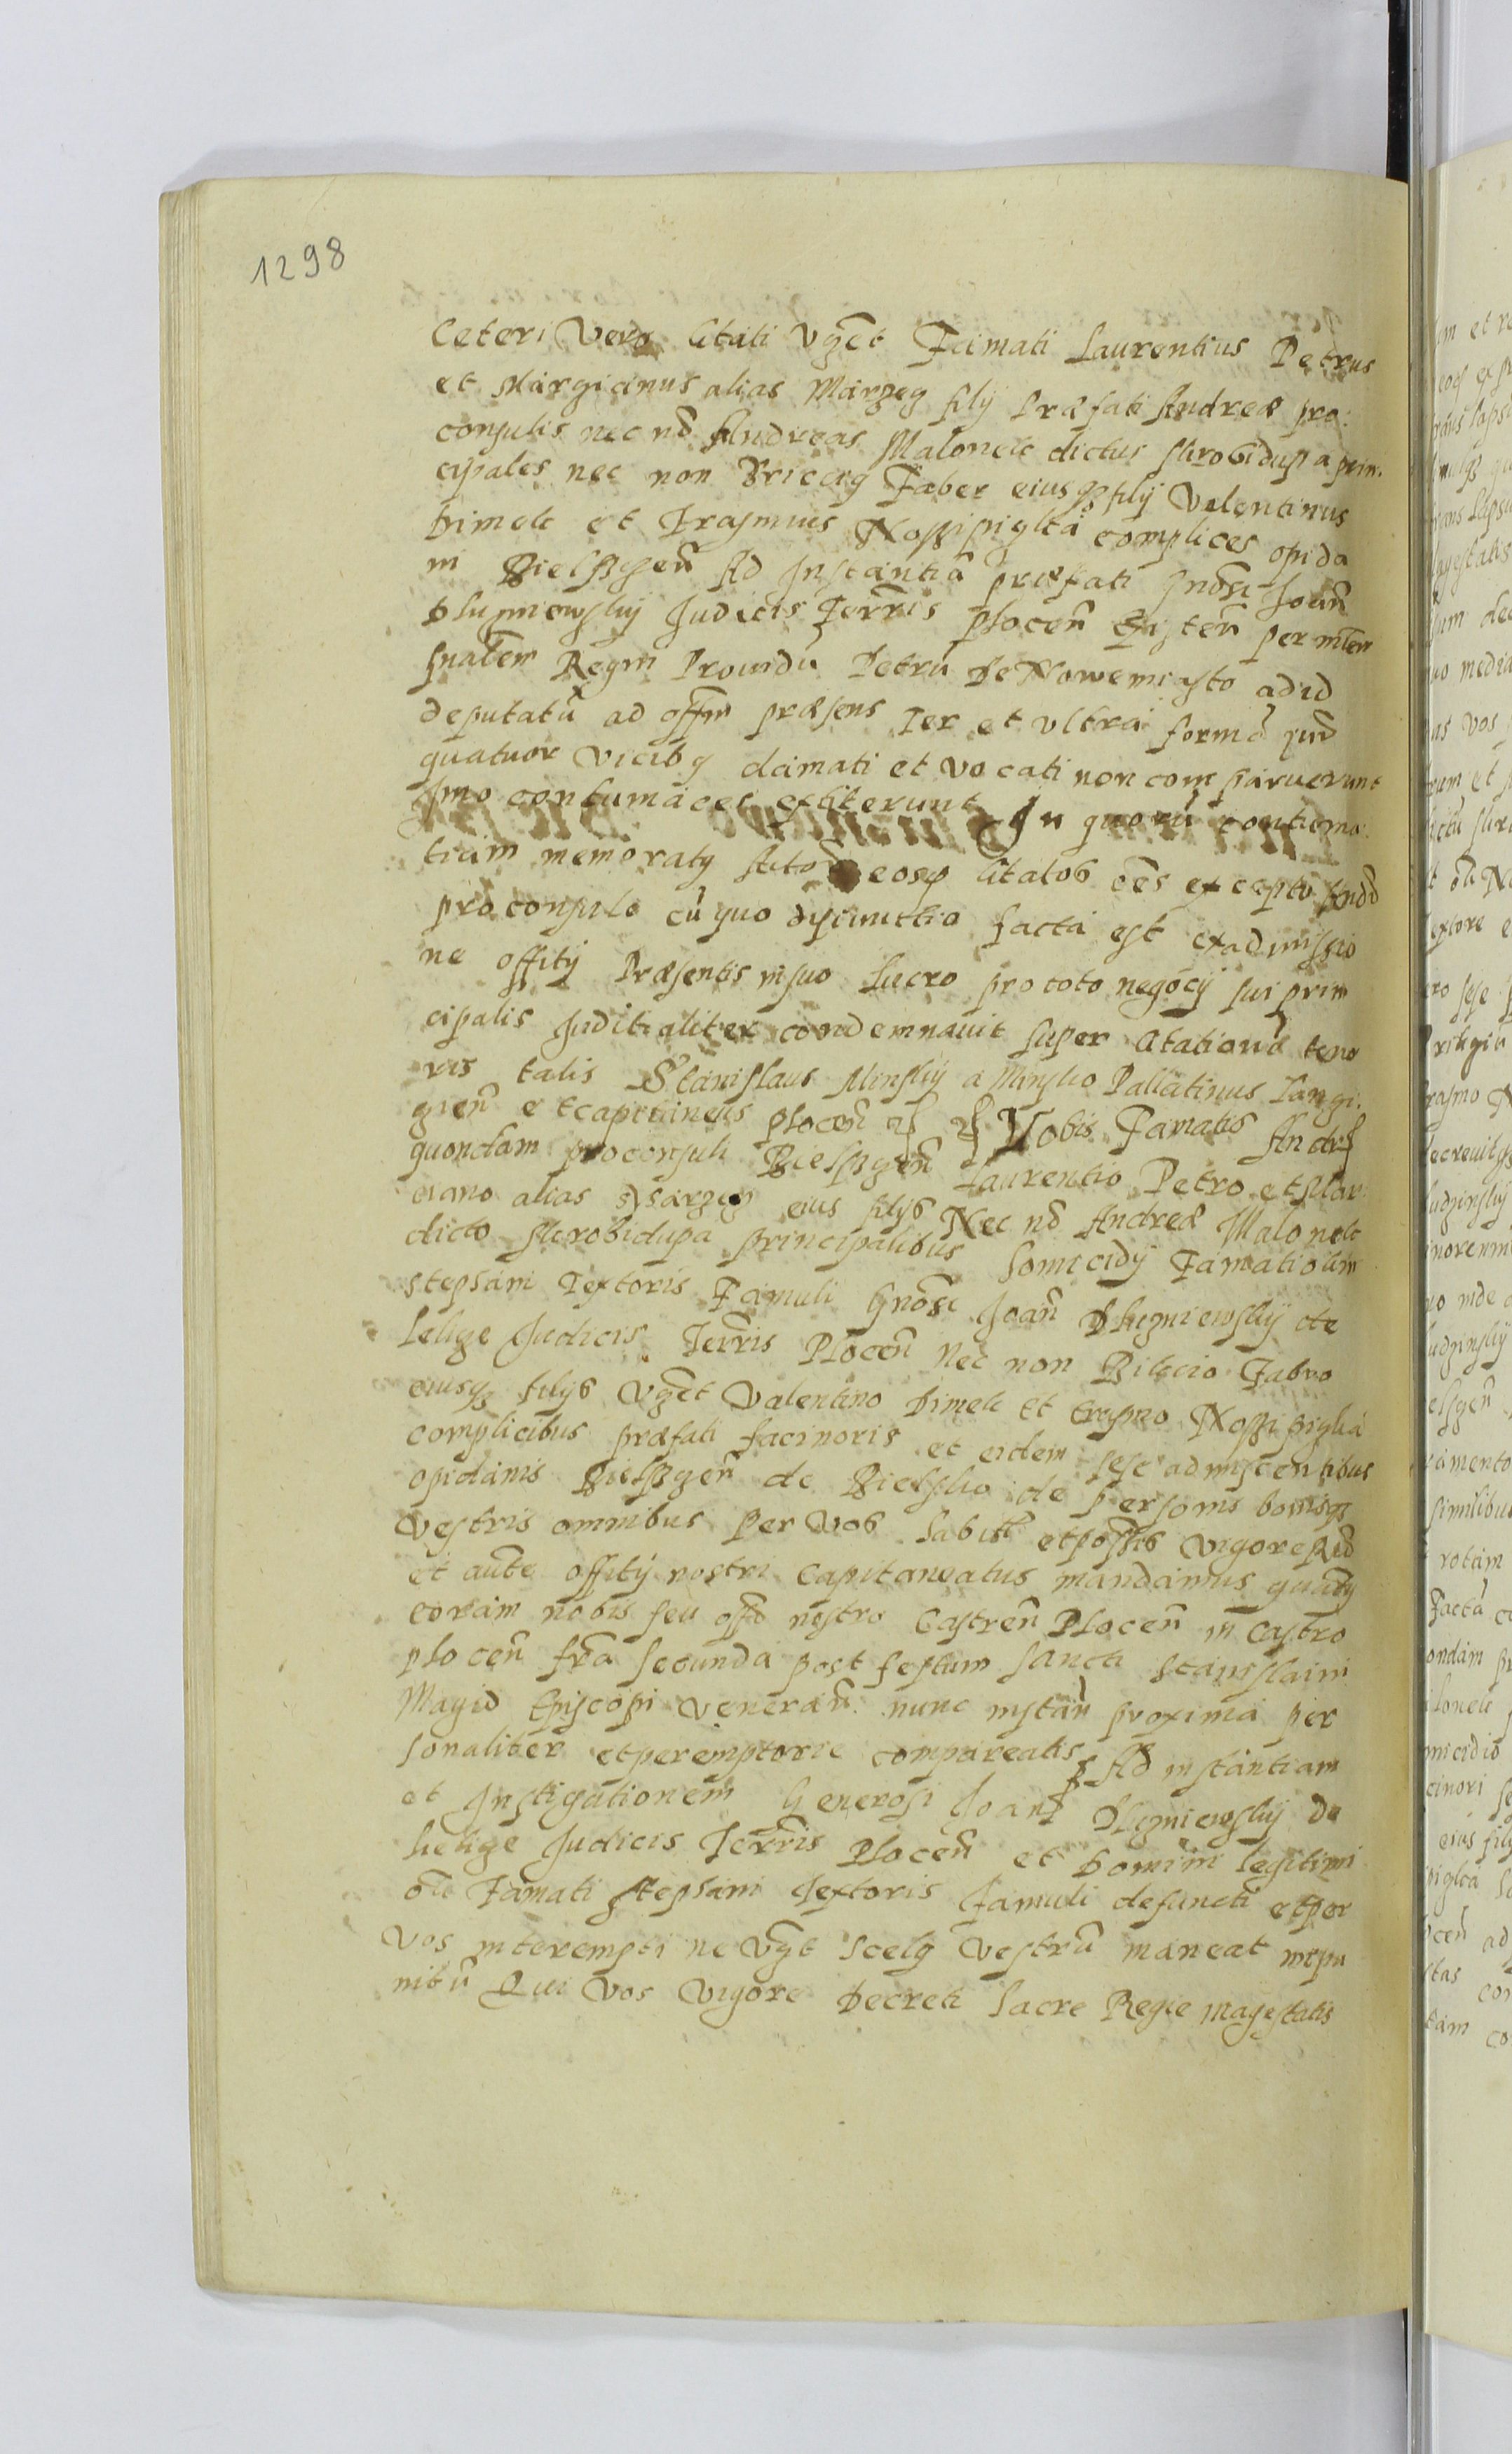 1298
Ceteri Vero Citati vczt Famati Laurentius Petrus
et Margianus alias Marzeg filÿ Præfati Andreæ pro:
consulis nec nō Andreas Malonek dictus Skrobidupa prin:
cipales nec non Briccig Faber eiusq3 filÿ Valentinus
Dimek et Erasmus Nosspiglka complices opida
ni Bielszgen̄ Ad Instantiā præfati Gnōsi Joan̄
Dluzniewskÿ Judicis Terr̄ris Plocen̄ Existen̄ per min̄
Regni Prouidū Petrū De Nowemiasto ad id
deputatū ad offm̄ præsens Ter et vltra formā iur̄
quatuor vicibg clamati et vocati non comparuerunt
Imo contumaces extiterunt In quorū contuma:
tiam memoratg Actor eosq Citatos ōēs excepto And
proconsule cū quo dpiunctio facta est ex admissio
ne offitÿ Præsentis in suo Lucro pro toto negocÿ sui prin
cipalis Juditialiter condemnauit super Citationē teno
ris talis Stanislaus Minskÿ a Minsko Pallatinus Lanci:
cien̄ et capitaneus Plocen̄ Vobis Famatis Andr
quondam proconsuli Bielszgen̄ Laurentio Petro et Mar
ciano alias Marzeg eius filÿs Nec nō Andreæ Malonek
dicto Skrobidupa principalibus homicidÿ Famati olim
Stephani Textoris Famuli Gnōsi Joan̄ Dluzniewskÿ de
Lelize Judicis Terr̄ris Plocen̄ Nec non Bricio Fabro
eiusq3 filÿs vczt Valentino Dimek et Erasmo Nosspiglka
complicibus præfati facinoris et eidem sese admiscentibus
opidanis Bielszgen̄ de Bielsko de personis bonisq3
Vestris omnibus Per Vos habit̄ et possis vigore Reg
et aute offitÿ nostri Capitaneatus mandamus quatg
coram nobis seu offō nostro Castren̄ Plocen̄ in Castro
Plocen̄ fr̄a Secunda post festum Sancti Stanislai in
Mayo Episcopi veneran̄ nunc instan̄ proxima per
sonaliter et peremptorie compareatis Ad instantiam
et Instigationem Generosi Joan̄ Dluzniewskÿ de
Lelige Judicis Terr̄ris Plocen̄ et Domini legitimi
oli Famati Stephani Textoris Famuli defuncti et per
vos interempti ne vczt scelg Vestrū maneat impu
nitū Qui vos vigore Decreti Sacre Regie Magestatis